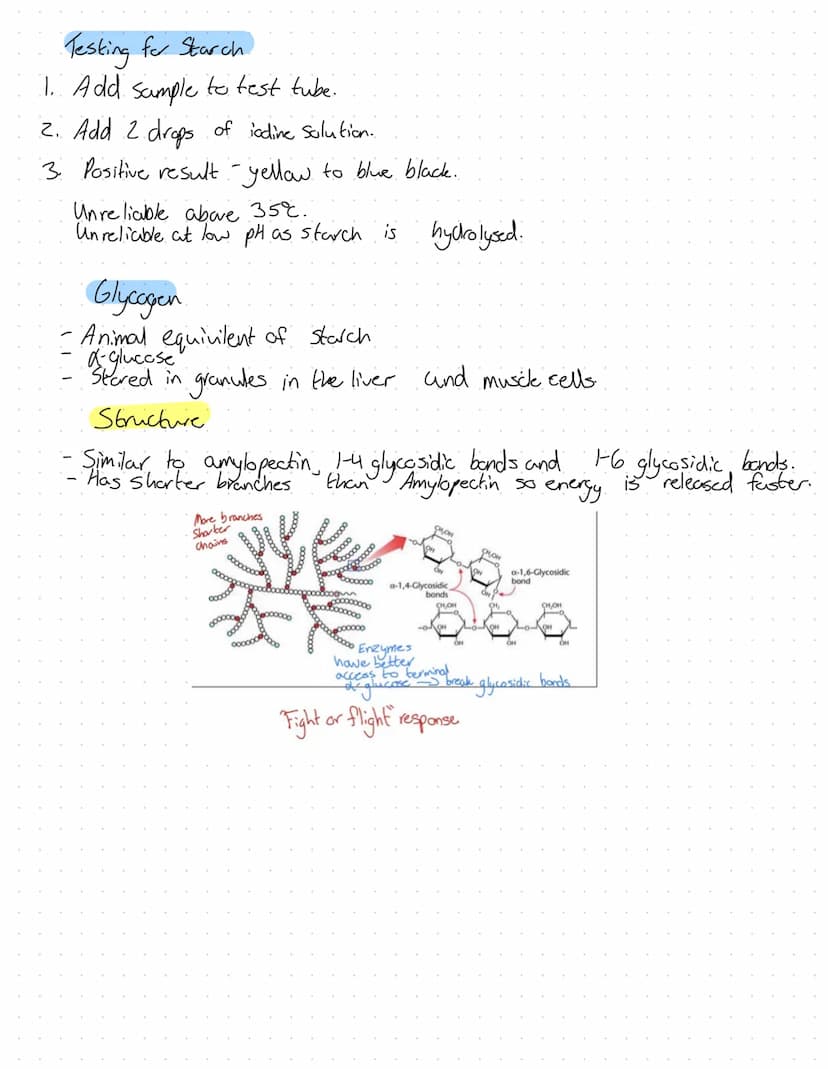 Testing for Starch
1. Add sample to test tube.
2. Add 2 drops of iodine solution.
3. Positive result - yellow to blue black.
Unreliable above 35°C.
Unreliable at low pH as starch is hydrolysed.
Glycogen
- Animal equivilent of starch
- α-glucose
- Stored in granules in the liver and muscle cells
Structure
- Similar to amylopectin, 1-4 glycosidic bonds and 1-6 glycosidic bonds.
- Has shorter branches than Amylopectin so energy is released faster.
More branches
Shorter
chains
CH₂OH
O
OH
OH
CH₂OH
O
OH
OH
α-1,6-Glycosidic
bond
α-1,4-Glycosidic
bonds
CH₂OH
CH₂
CH₂OH
OH
OH
OH
OH
OH
OH
Enzymes
have better
access to terminal
α-glucose → break glycosidic bonds
"Fight or flight" response